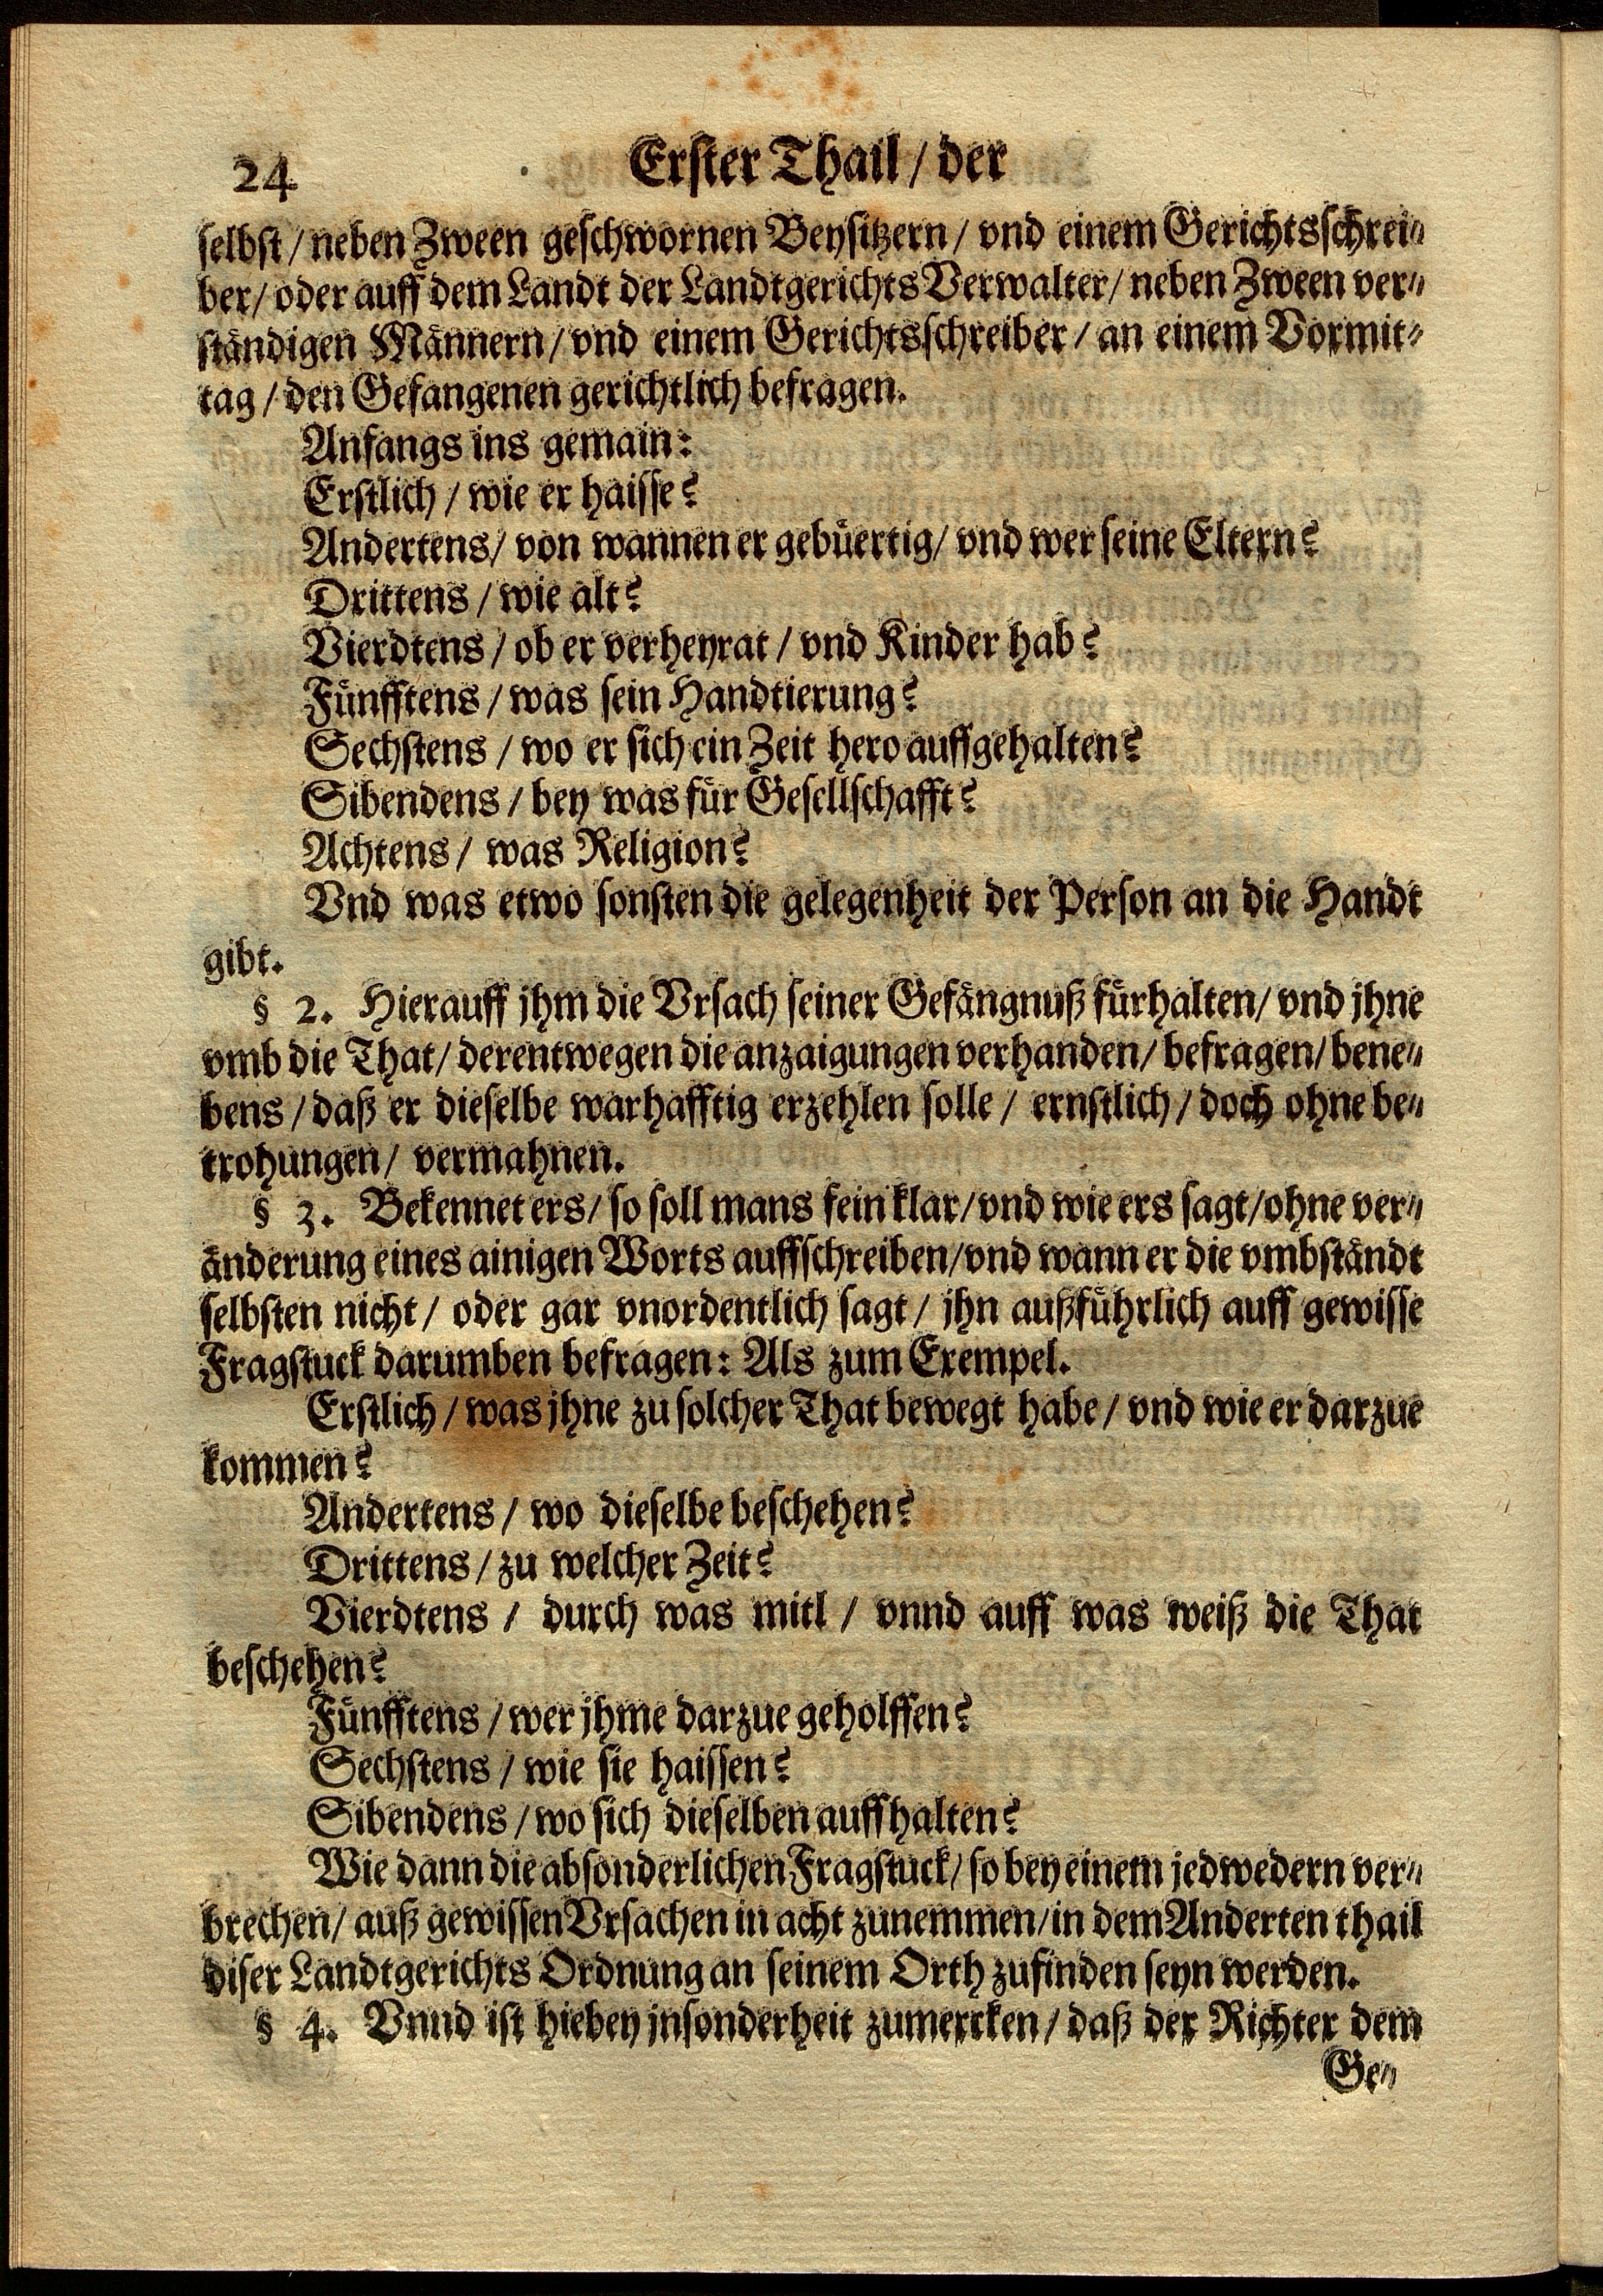 24
Erster Thail / der
selbst / neben Zween geschwornen Beysitzern / vnd einem Gerichtsschrei⸗
ber / oder auff dem Landt der Landtgerichts Verwalter / neben Zween ver⸗
ständigen Männern / vnd einem Gerichtsschreiber / an einem Vormit⸗
tag / den Gefangenen gerichtlich befragen.
Anfangs ins gemain:
Erstlich / wie er haisse?
Andertens / von wannen er gebüertig / vnd wer seine Eltern?
Drittens / wie alt?
Vierdtens / ob er verheyrat / vnd Kinder hab?
Fünfftens / was sein Handtierung?
Sechstens / wo er sich ein Zeit hero auffgehalten?
Sibendens / bey was für Gesellschafft?
Achtens / was Religion?
Vnd was etwo sonsten die gelegenheit der Person an die Handt
gibt.
§ 2. Hierauff jhm die Vrsach seiner Gefängnuß fürhalten / vnd jhne
vmb die That / derentwegen die anzaigungen verhanden / befragen / bene⸗
bens / daß er dieselbe warhafftig erzehlen solle / ernstlich / doch ohne be⸗
trohungen / vermahnen.
§ 3. Bekennet ers / so soll mans fein klar / vnd wie ers sagt / ohne ver⸗
änderung eines ainigen Worts auffschreiben / vnd wann er die vmbständt
selbsten nicht / oder gar vnordentlich sagt / jhn außführlich auff gewisse
Fragstuck darumben befragen: Als zum Exempel.
Erstlich / was jhne zu solcher That bewegt habe / vnd wie er darzue
kommen?
Andertens / wo dieselbe beschehen?
Drittens / zu welcher Zeit?
Vierdtens / durch was mitl / vnnd auff was weiß die That
beschehen?
Fünfftens / wer jhme darzue geholffen?
Sechstens / wie sie haissen?
Sibendens / wo sich dieselben auffhalten?
Wie dann die absonderlichen Fragstuck / so bey einem jedwedern ver⸗
brechen / auß gewissen Vrsachen in acht zunemmen / in dem Anderten thail
diser Landtgerichts Ordnung an seinem Orth zufinden seyn werden.
§ 4. Vnnd ist hiebey jnsonderheit zumercken / daß der Richter dem
Ge⸗